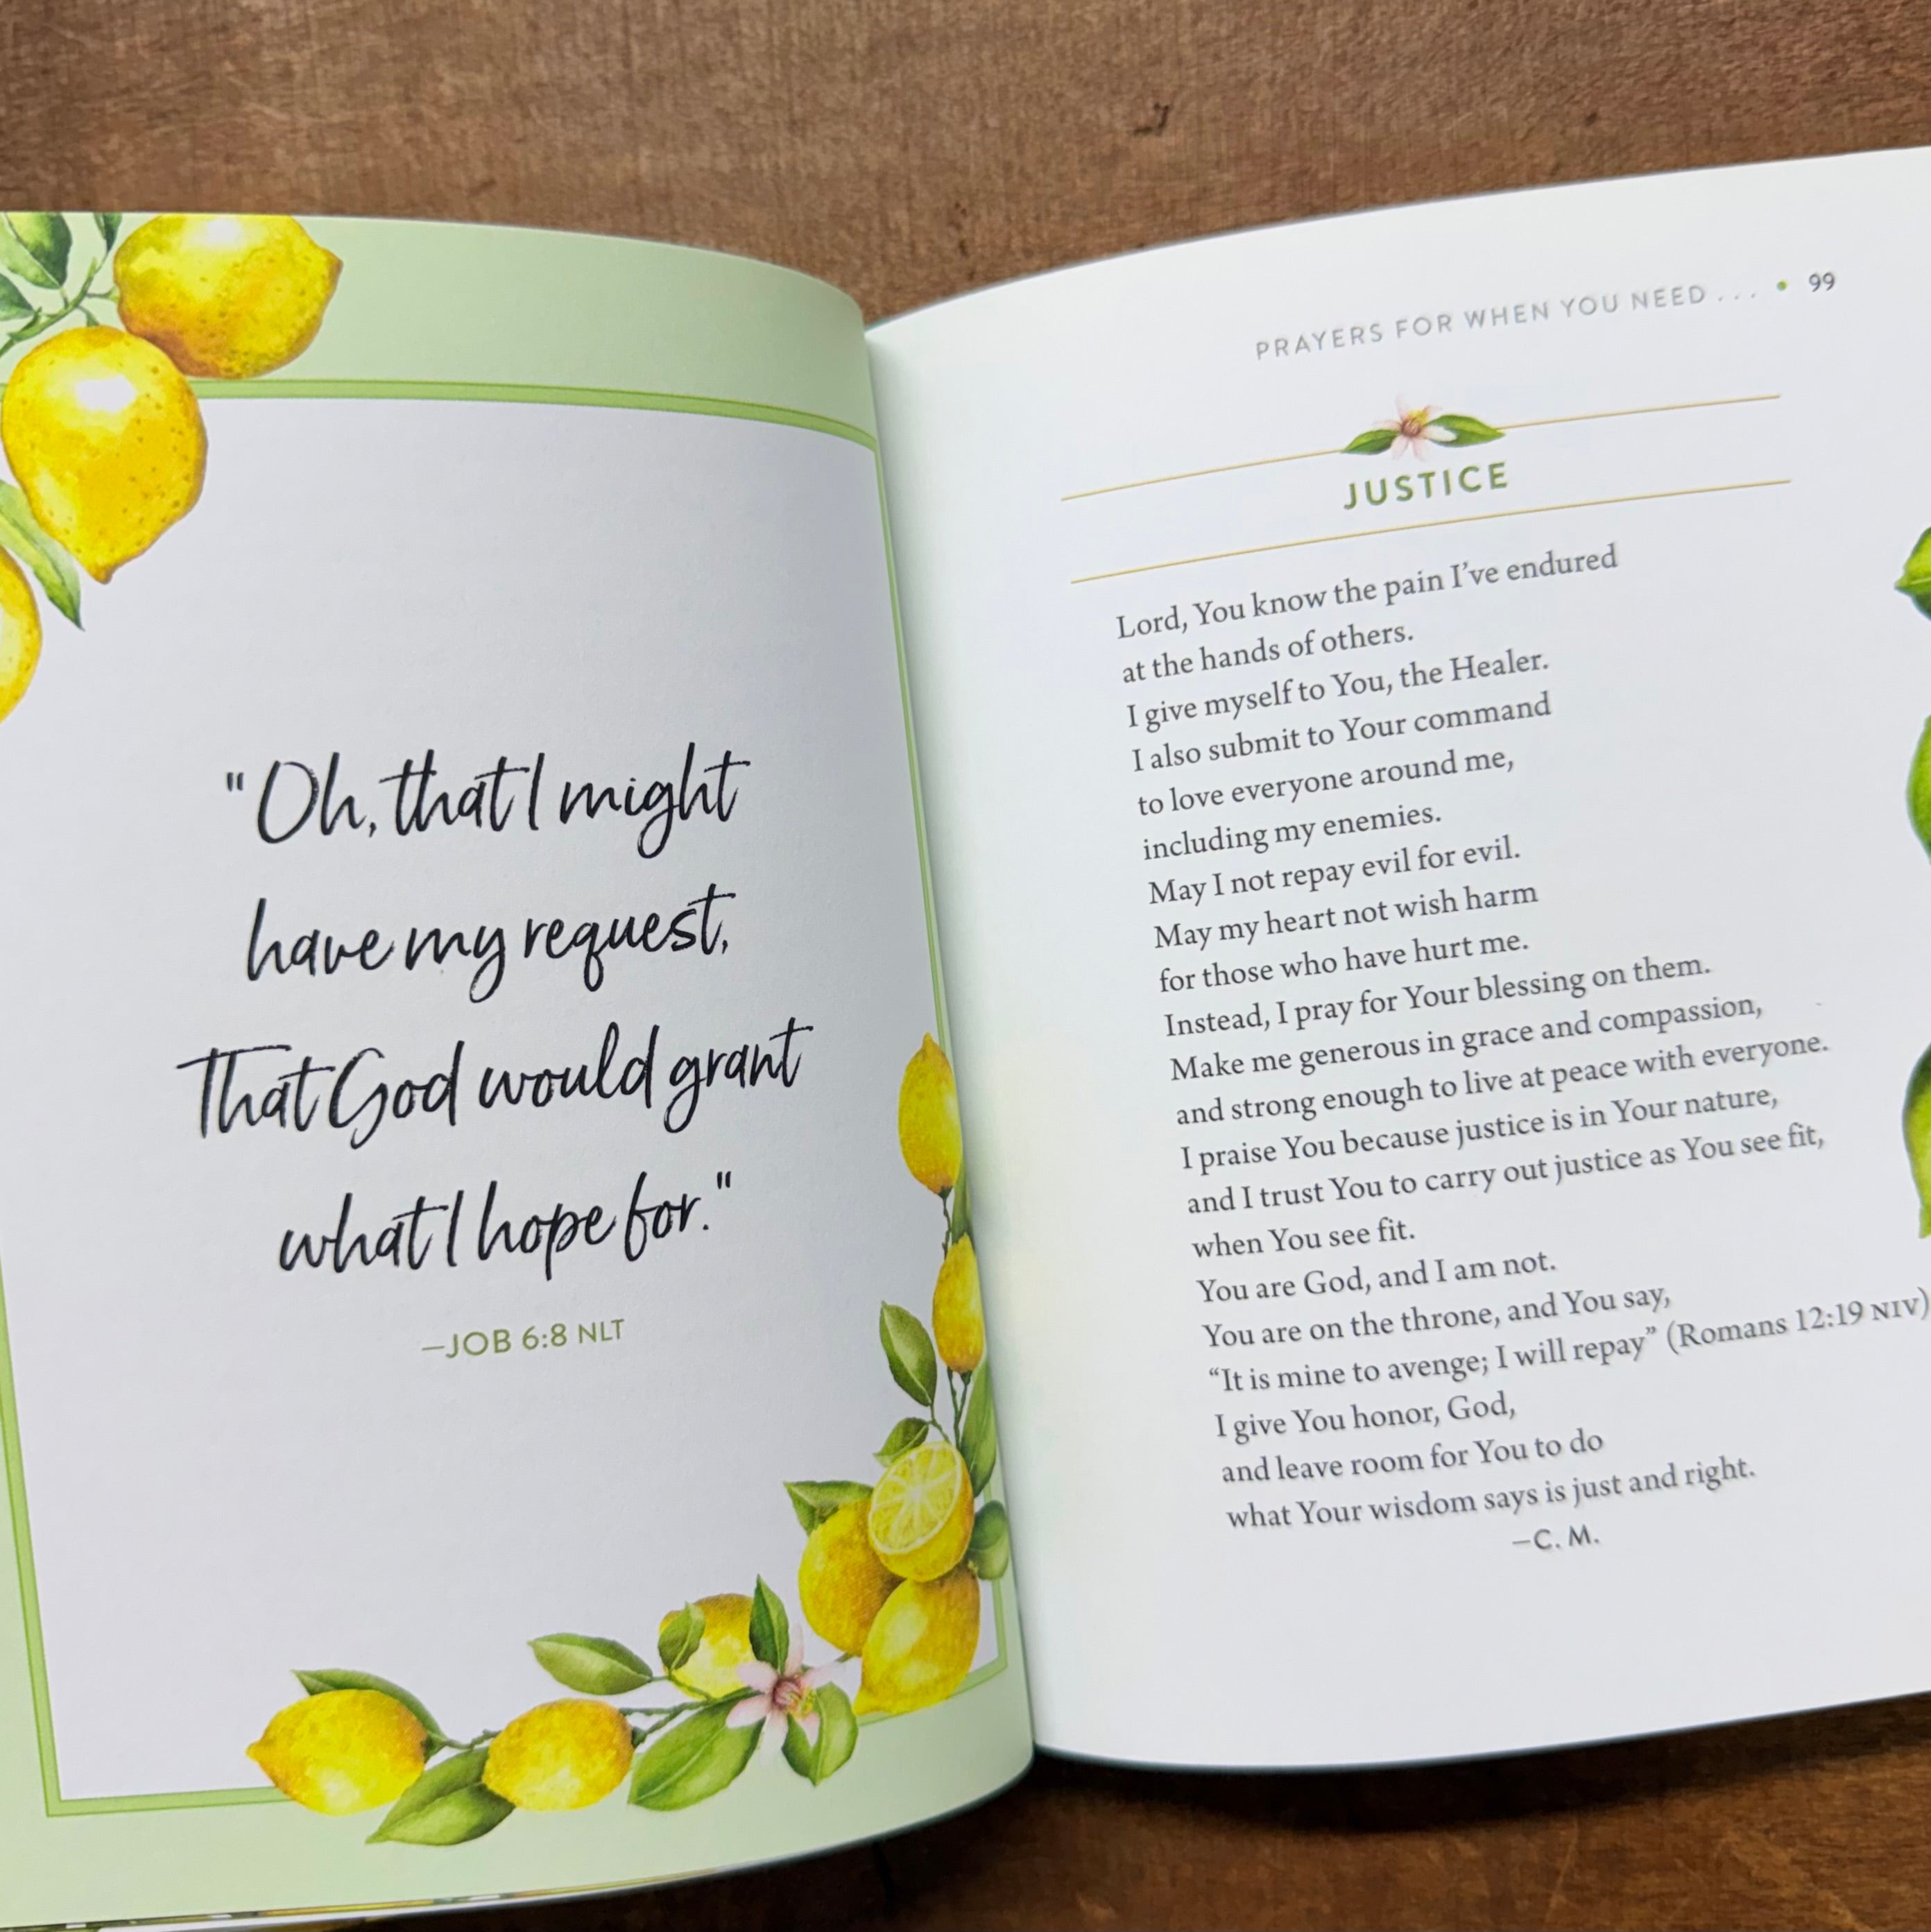 "Oh, that I might
have my request,
That God would grant
what I hope for."
—JOB 6:8 NLT
PRAYERS FOR WHEN YOU NEED . . . • 99
JUSTICE
Lord, You know the pain I’ve endured
at the hands of others.
I give myself to You, the Healer.
I also submit to Your command
to love everyone around me,
including my enemies.
May I not repay evil for evil.
May my heart not wish harm
for those who have hurt me.
Instead, I pray for Your blessing on them.
Make me generous in grace and compassion,
and strong enough to live at peace with everyone.
I praise You because justice is in Your nature,
and I trust You to carry out justice as You see fit,
when You see fit.
You are God, and I am not.
You are on the throne, and You say,
“It is mine to avenge; I will repay” (Romans 12:19 NIV)
I give You honor, God,
and leave room for You to do
what Your wisdom says is just and right.
—C. M.